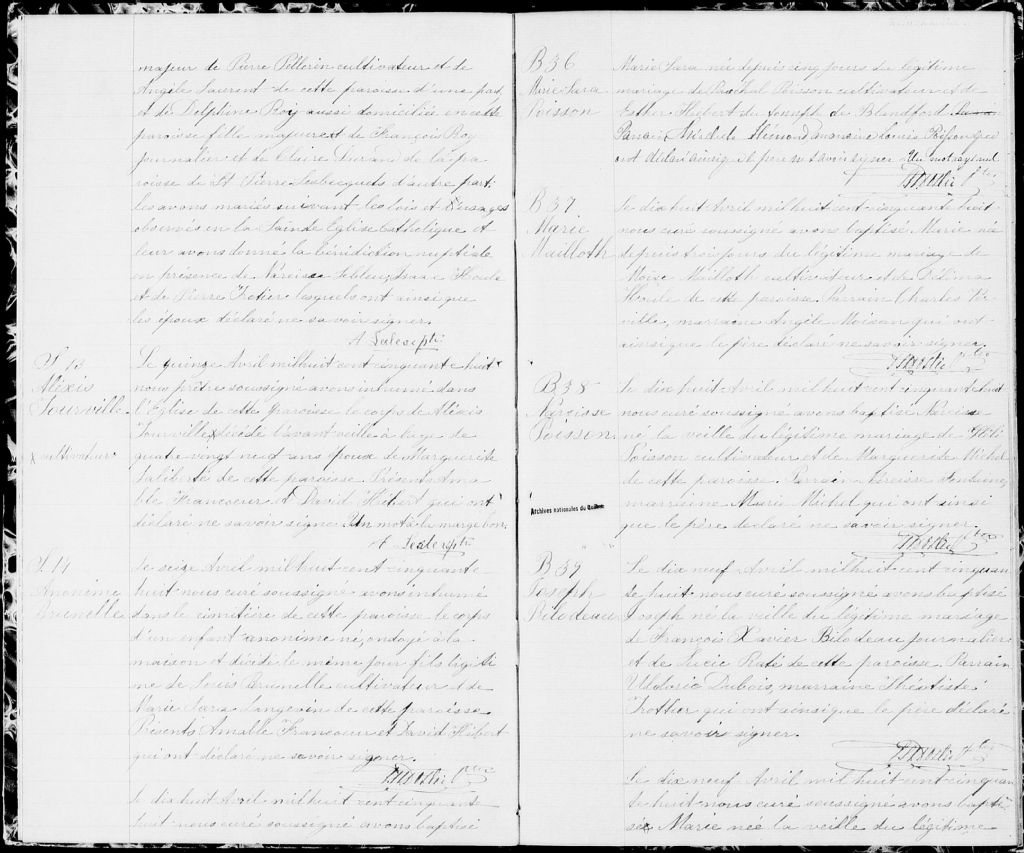 majeur de Pierre Pellerin cultivateur et de
Angèle Laurent de cette paroisse d'une part
et de Delphine Roy aussi domiciliée en cette
paroisse fille majeure de François Roy
journalier et de Claire Durand de la pa
roisse de St Pierre Lesbecquets d'autre part
les avons mariés suivant les lois et usages
observés en la Sainte Eglise Catholique et
leur avons donné la bénédiction nuptiale
en présence de Narcisse Houle
et de Pierre Trotier lesquels ont ainsi que
les époux déclaré ne savoir signer.
S 13
Alexis
Tourville
x cultivateur
Le quinze Avril mil huit cent cinquante huit
nous prêtre soussigné avons inhumé dans
l'Eglise de cette paroisse le corps de Alexis
Tourville x décédé l'avant veille à l'age de
quatre vingt neuf ans époux de Marguerite
Laliberté de cette paroisse. Présents Ama
ble Francoeur et David Hébert qui ont
déclaré ne savoir signer. Un mot à la marge bon.
S.14
Anonime
Brunelle
Le seize Avril mil huit cent cinquante
huit nous curé soussigné avons inhumé
dans le cimitière de cette paroisse le corps
d'un enfant anonime né, ondoyé à la
maison et décédé le même jour fils légiti
me de Louis Brunelle cultivateur et de
Marie Sara Langevin de cette paroisse
Présents Amable Francoeur et David Hébert
qui ont déclaré ne savoir signer.
Le dix huit Avril mil huit cent cinquante
huit nous curé soussigné avons baptisé
B 36
Marie Sara
Poisson
Marie Sara née depuis cinq jours du légitime
mariage de Paschal Poisson cultivateur et de
Esther Hébert de Joseph de Blandford
ont déclaré ainsi que le père ne savoir signer. Un mot rayé nul
B 37
Marie
Mailloth
Le dix huit Avril mil huit cent cinquante huit
nous curé soussigné avons baptisé Marie née
depuis trois jours du légitime mariage de
Moïse Mailloth cultivateur et de Zélina
Houle de cette paroisse. Parrain Charles
ville, marraine Angèle Moison qui ont
ainsi que le père déclaré ne savoir signer.
B 38
Narcisse
Poisson
Le dix huit Avril mil huit cent cinquante huit
nous curé soussigné avons baptisé Narcisse
né la veille du légitime mariage de
Poisson cultivateur et de Marguerite Michel
de cette paroisse. Parrain Narcisse Fontaine,
marraine Marie Michel qui ont ainsi
que le père déclaré ne savoir signer.
Archives nationales du Québec
B 39
Joseph
Bilodeau
Le dix neuf Avril mil huit cent cinquan
te huit nous curé soussigné avons baptisé
Joseph né la veille du légitime mariage
de François Xavier Bilodeau journalier
et de Lucie Raté de cette paroisse. Parrain
Uldoric Dubois, marraine Théotiste
Trottier qui ont ainsi que le père déclaré
ne savoir signer.
Le dix neuf Avril mil huit cent cinquan
te huit nous curé soussigné avons bapti
sé Marie née la veille du légitime